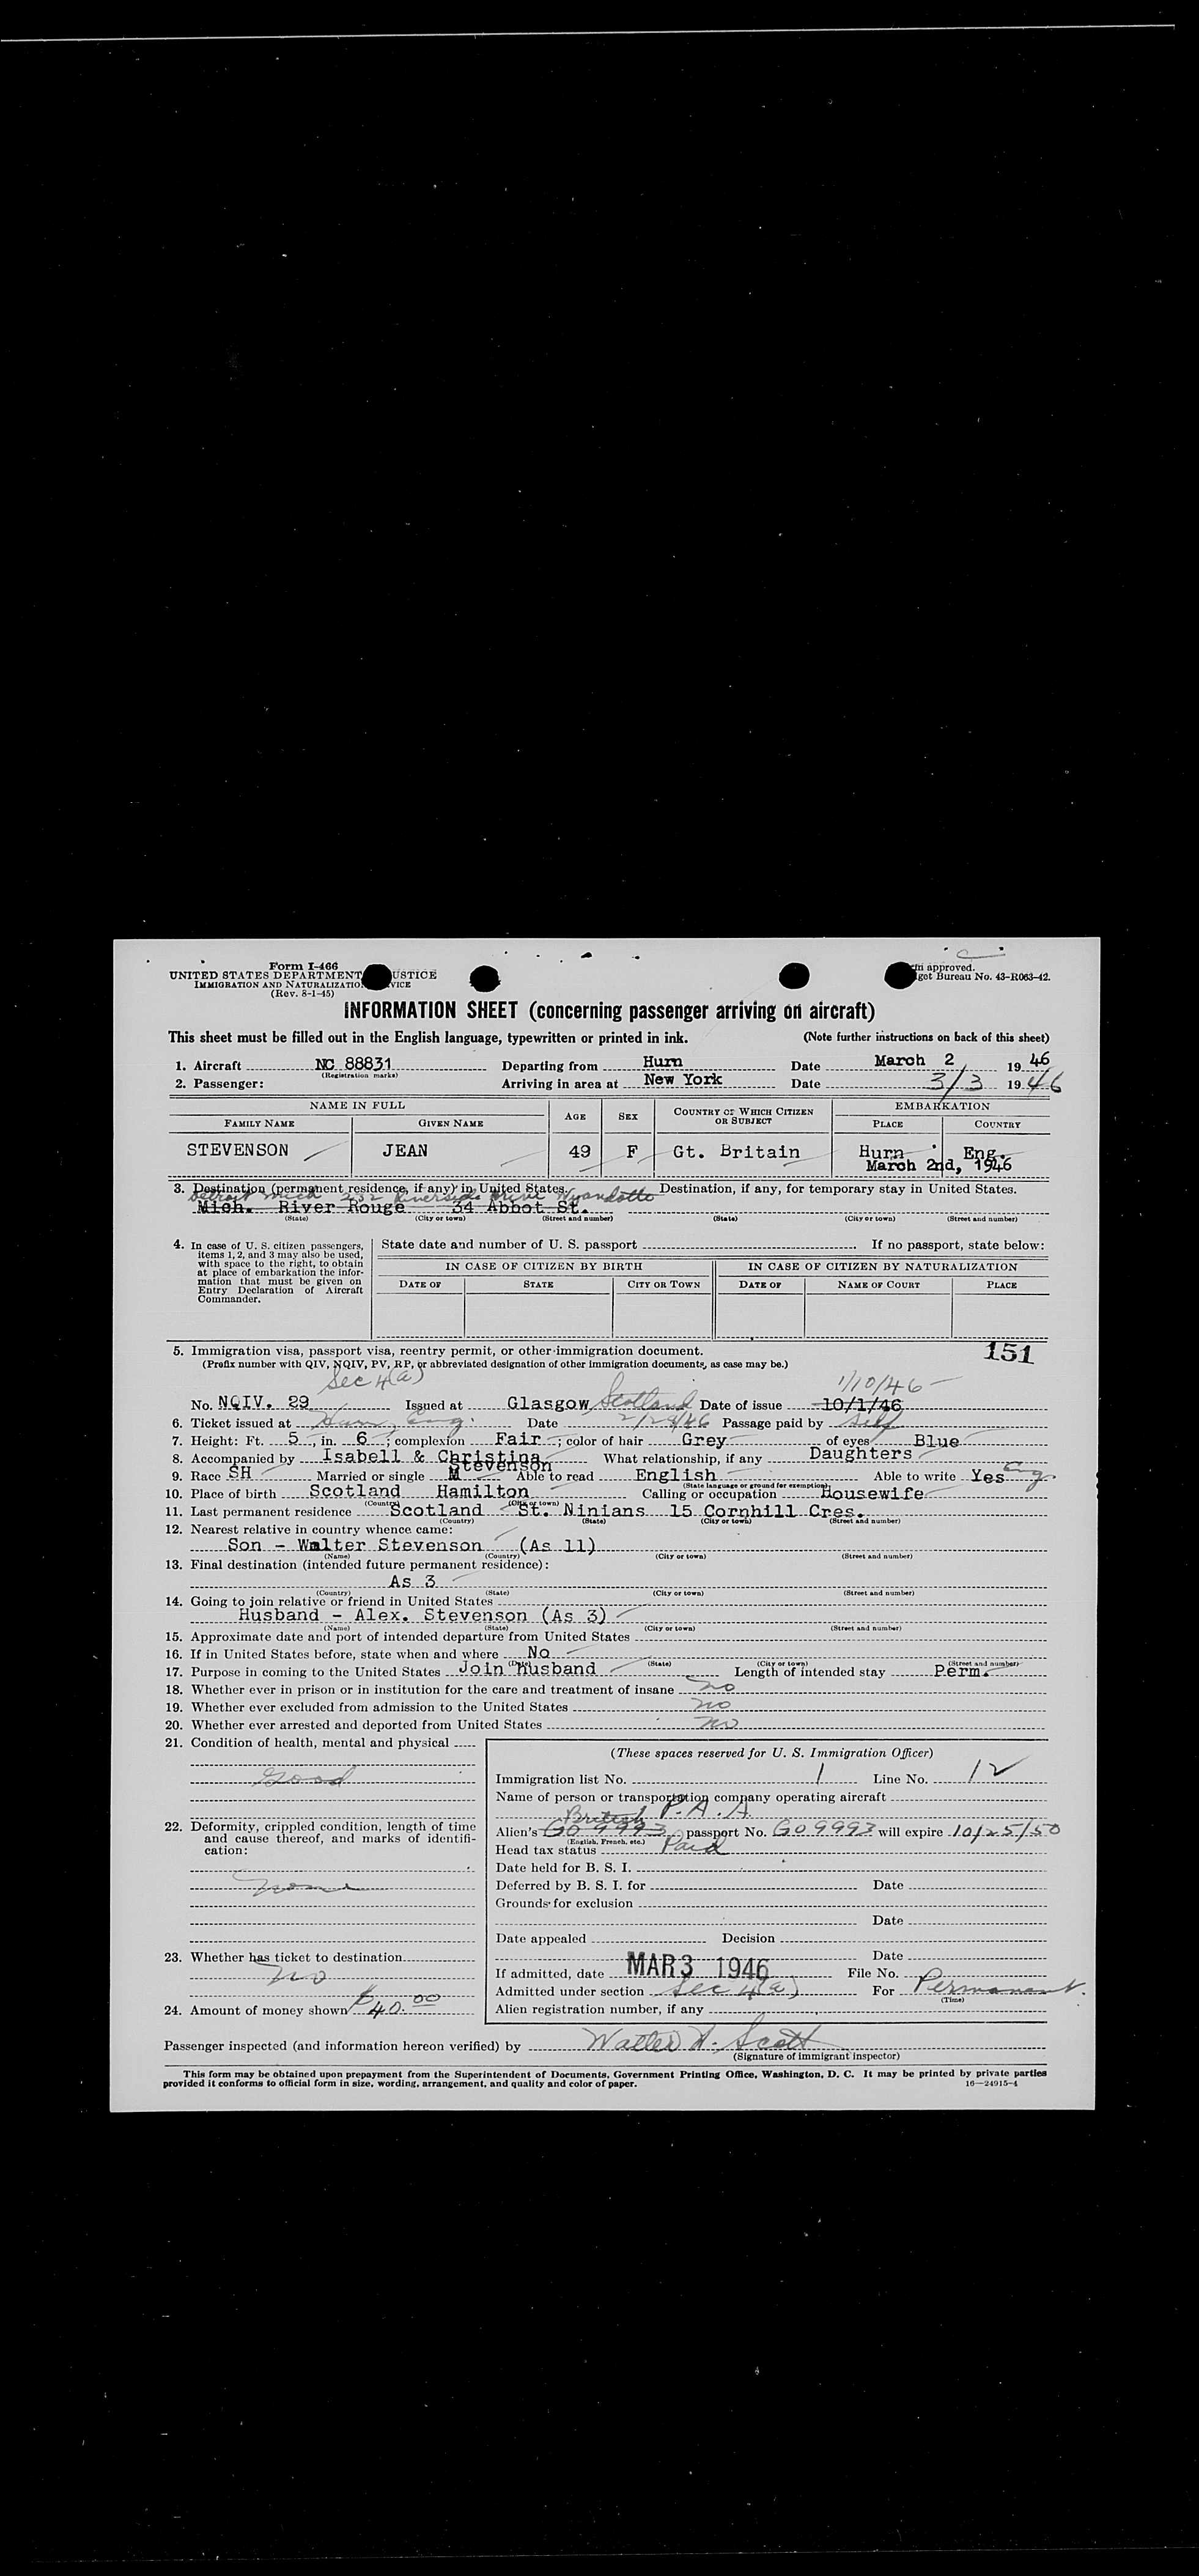 Form I-466
UNITED STATES DEPARTMENT USTICE
IMMIGRATION AND NATURALIZATIO VICE
(Rev. 8-1-45)
m approved.
get Bureau No. 43-R063-42.
INFORMATION SHEET (concerning passenger arriving on aircraft)
This sheet must be filled out in the English language, typewritten or printed in ink. (Note further instructions on back of this sheet)
1. Aircraft NC 88831 Departing from Hurn Date March 2, 1946
(Registration marks)
2. Passenger: Arriving in area at New York Date 3/3 1946
NAME IN FULL AGE SEX COUNTRY OF WHICH CITIZEN OR SUBJECT EMBARKATION
FAMILY NAME GIVEN NAME PLACE COUNTRY
STEVENSON JEAN 49 F Gt. Britain Hurn Eng.
March 2nd, 1946
3. Destination (permanent residence, if any) in United States. Destination, if any, for temporary stay in United States.
Detroit Mich 232 Riverside Drive Wyandotte
Mich. River Rouge 34 Abbot St.
(State) (City or town) (Street and number) (State) (City or town) (Street and number)
4. In case of U. S. citizen passengers, items 1, 2, and 3 may also be used, with space to the right, to obtain at place of embarkation the information that must be given on Entry Declaration of Aircraft Commander.
State date and number of U. S. passport If no passport, state below:
IN CASE OF CITIZEN BY BIRTH IN CASE OF CITIZEN BY NATURALIZATION
DATE OF STATE CITY OR TOWN DATE OF NAME OF COURT PLACE
5. Immigration visa, passport visa, reentry permit, or other immigration document. 151
(Prefix number with QIV, NQIV, PV, RP, or abbreviated designation of other immigration documents, as case may be.)
Sec 4(a) 1/10/46
No. NQIV. 29 Issued at Glasgow, Scotland Date of issue 10/1/46
6. Ticket issued at Hurn, Eng. Date 2/28/46 Passage paid by Self
7. Height: Ft. 5, in. 6; complexion Fair; color of hair Grey of eyes Blue
8. Accompanied by Isabell & Christina Stevenson What relationship, if any Daughters
9. Race SH Married or single M Able to read English Able to write Yes Eng
(State language or ground for exemption)
10. Place of birth Scotland Hamilton Calling or occupation Housewife
(Country) (City or town)
11. Last permanent residence Scotland St. Ninians 15 Cornhill Cres.
(Country) (State) (City or town) (Street and number)
12. Nearest relative in country whence came:
Son - Walter Stevenson (As 11)
(Name) (Country) (City or town) (Street and number)
13. Final destination (intended future permanent residence):
As 3
(Country) (State) (City or town) (Street and number)
14. Going to join relative or friend in United States
Husband - Alex. Stevenson (As 3)
(Name) (State) (City or town) (Street and number)
15. Approximate date and port of intended departure from United States
16. If in United States before, state when and where No
(Date) (State) (City or town) (Street and number)
17. Purpose in coming to the United States Join Husband Length of intended stay Perm.
18. Whether ever in prison or in institution for the care and treatment of insane no
19. Whether ever excluded from admission to the United States no
20. Whether ever arrested and deported from United States no
21. Condition of health, mental and physical
Good
22. Deformity, crippled condition, length of time and cause thereof, and marks of identification:
None
23. Whether has ticket to destination
no
24. Amount of money shown $40.00
(These spaces reserved for U. S. Immigration Officer)
Immigration list No. 1 Line No. 12
Name of person or transportation company operating aircraft
British P.A.A.
Alien's GO 9993 passport No. GO9993 will expire 10/25/50
(English, French, etc.)
Head tax status Paid
Date held for B. S. I.
Deferred by B. S. I. for Date
Grounds for exclusion
Date
Date appealed Decision
Date
If admitted, date MAR 3 1946 File No.
Admitted under section Sec 4(a) For Permanent.
(Time)
Alien registration number, if any
Passenger inspected (and information hereon verified) by Walter H. Scott
(Signature of immigrant inspector)
This form may be obtained upon prepayment from the Superintendent of Documents, Government Printing Office, Washington, D. C. It may be printed by private parties
provided it conforms to official form in size, wording, arrangement, and quality and color of paper. 16—24915-4